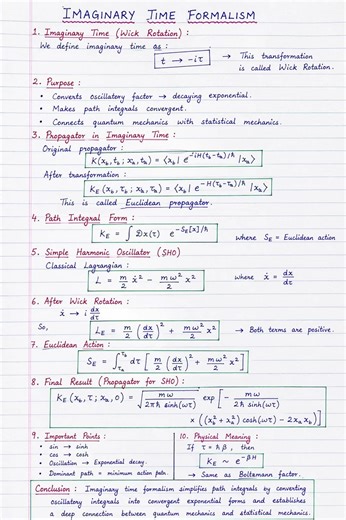 IMAGINARY TIME FORMALISM
1. Imaginary Time (Wick Rotation) :
We define imaginary time as :
t → -iτ → This transformation
is called Wick Rotation.
2. Purpose :
• Converts oscillatory factor → decaying exponential.
• Makes path integrals convergent.
• Connects quantum mechanics with statistical mechanics.
3. Propagator in Imaginary Time :
Original propagator :
K(x_b, t_b; x_a, t_a) = ⟨x_b| e^{-iH(t_b-t_a)/ħ} |x_a⟩
After transformation :
K_E (x_b, τ_b; x_a, τ_a) = ⟨x_b| e^{-H(τ_b-τ_a)/ħ} |x_a⟩
This is called Euclidean propagator.
4. Path Integral Form :
K_E = ∫ Dx(τ) e^{-S_E[x]/ħ} where S_E = Euclidean action
5. Simple Harmonic Oscillator (SHO)
Classical Lagrangian :
L = m/2 ẋ² - mω²/2 x² where ẋ = dx/dt
6. After Wick Rotation :
ẋ → i dx/dτ
So, L_E = m/2 (dx/dτ)² + mω²/2 x² → Both terms are positive.
7. Euclidean Action :
S_E = ∫_{τ_a}^{τ_b} dτ [ m/2 (dx/dτ)² + mω²/2 x² ]
8. Final Result (Propagator for SHO) :
K_E (x_b, τ; x_a, 0) = √(mω / 2πħ sinh(ωτ)) exp [ - mω / 2ħ sinh(ωτ)
× ((x_b² + x_a²) cosh(ωτ) - 2x_a x_b) ]
9. Important Points :
• sin → sinh
• cos → cosh
• Oscillation → Exponential decay.
• Dominant path = minimum action path.
10. Physical Meaning :
If τ = ħβ, then
K_E ~ e^{-βH}
→ Same as Boltzmann factor.
Conclusion : Imaginary time formalism simplifies path integrals by converting
oscillatory integrals into convergent exponential forms and establishes
a deep connection between quantum mechanics and statistical mechanics.